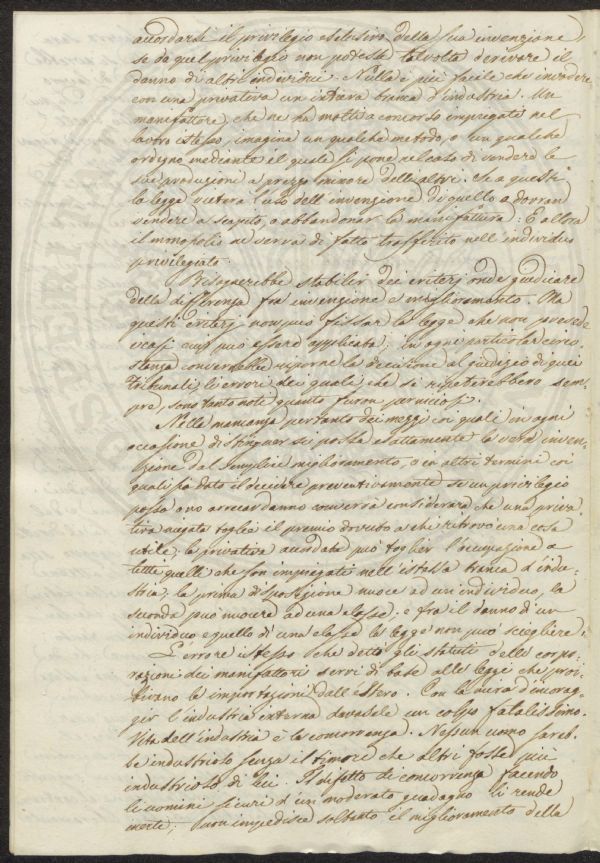 accordarsi il privilegio esclusivo della sua invenzione,
se da quel privilegio non potesse talvolta derivare il
danno di altri individui. Nulla è più facile che invadere
con una privativa un intiera branca d'industria. Un
manifattore, che ne ha molti a concorso impiegati nel
lavoro istesso, imagina un qualche metodo, o un qualche
ordigno mediante il quale si pone nel caso di vendere le
sue produzioni a prezzo minore delle altri. Se a questi
la legge vieterà l'uso dell'invenzione di quello dovran
vendere a scapito, o abbandonar la manifattura: E allora
il monopolio ne verrà di fatto trasferito nell'individuo
privilegiato.
Bisognerebbe stabilir dei criterj onde giudicare
della differenza fra invenzione e miglioramento. Ma
questi criterj non può fissar la legge che non prevede
i casi cui può essere applicata: in ogni particolar circo-
stanza converrebbe riporne la decisione al giudizio di quei
Tribunali, li errori dei quali che si ripeterebbero sem-
pre, sono tanto noti quanto furon perniciosi.
Nella mancanza pertanto dei mezzi coi quali in ogni
occasione distinguer si possa esattamente la vera inven-
zione dal semplice miglioramento, o in altri termini coi
quali sia dato il decidere preventivamente se un privilegio
possa o no arrecar danno converrà considerare che una priva-
tiva negata toglie il premio dovuto a chi ritrovò una cosa
utile; la privativa accordata può toglier l'occupazione a
tutti quelli che son impiegati nell'istessa branca d'indu-
stria; la prima disposizione nuoce ad un individuo, la
seconda può nuocere ad una classe: e fra il danno d'un
individuo e quello di una classe la legge non può scegliere.
L'errore istesso che dettò gli statuti delle corpo-
razioni dei manifattori servì di base alle leggi che proi-
bivano le importazioni dall'estero. Con la mira d'incorag-
ger l'industria interna davasele un colpo fatalissimo.
Vita dell'industria è la concorrenza. Nessun uomo sareb-
be industrioso senza il timore che altri fosse più
industrioso di lui. Il difetto di concorrenza facendo
li uomini sicuri d'un moderato guadagno li rende
inerti; impedisce soltanto il miglioramento della